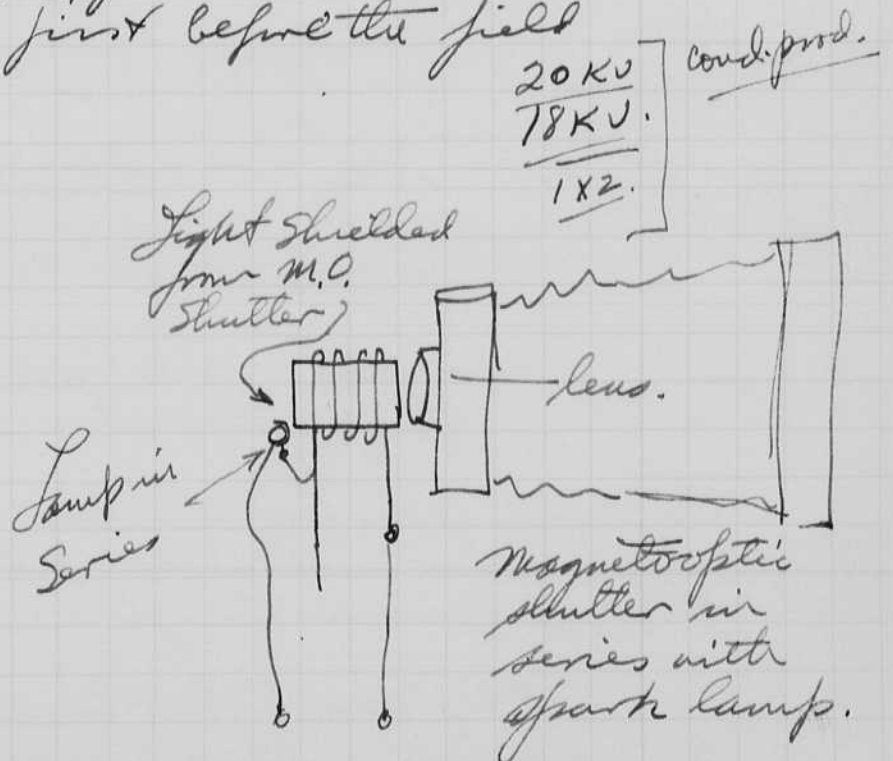 first before the field
20 KV
18 KV.
1 X 2.
cond. prod.
Light Shielded
from M.O.
Shutter
lens.
Lamp in
Series
Magnetooptic
shutter in
series with
spark lamp.